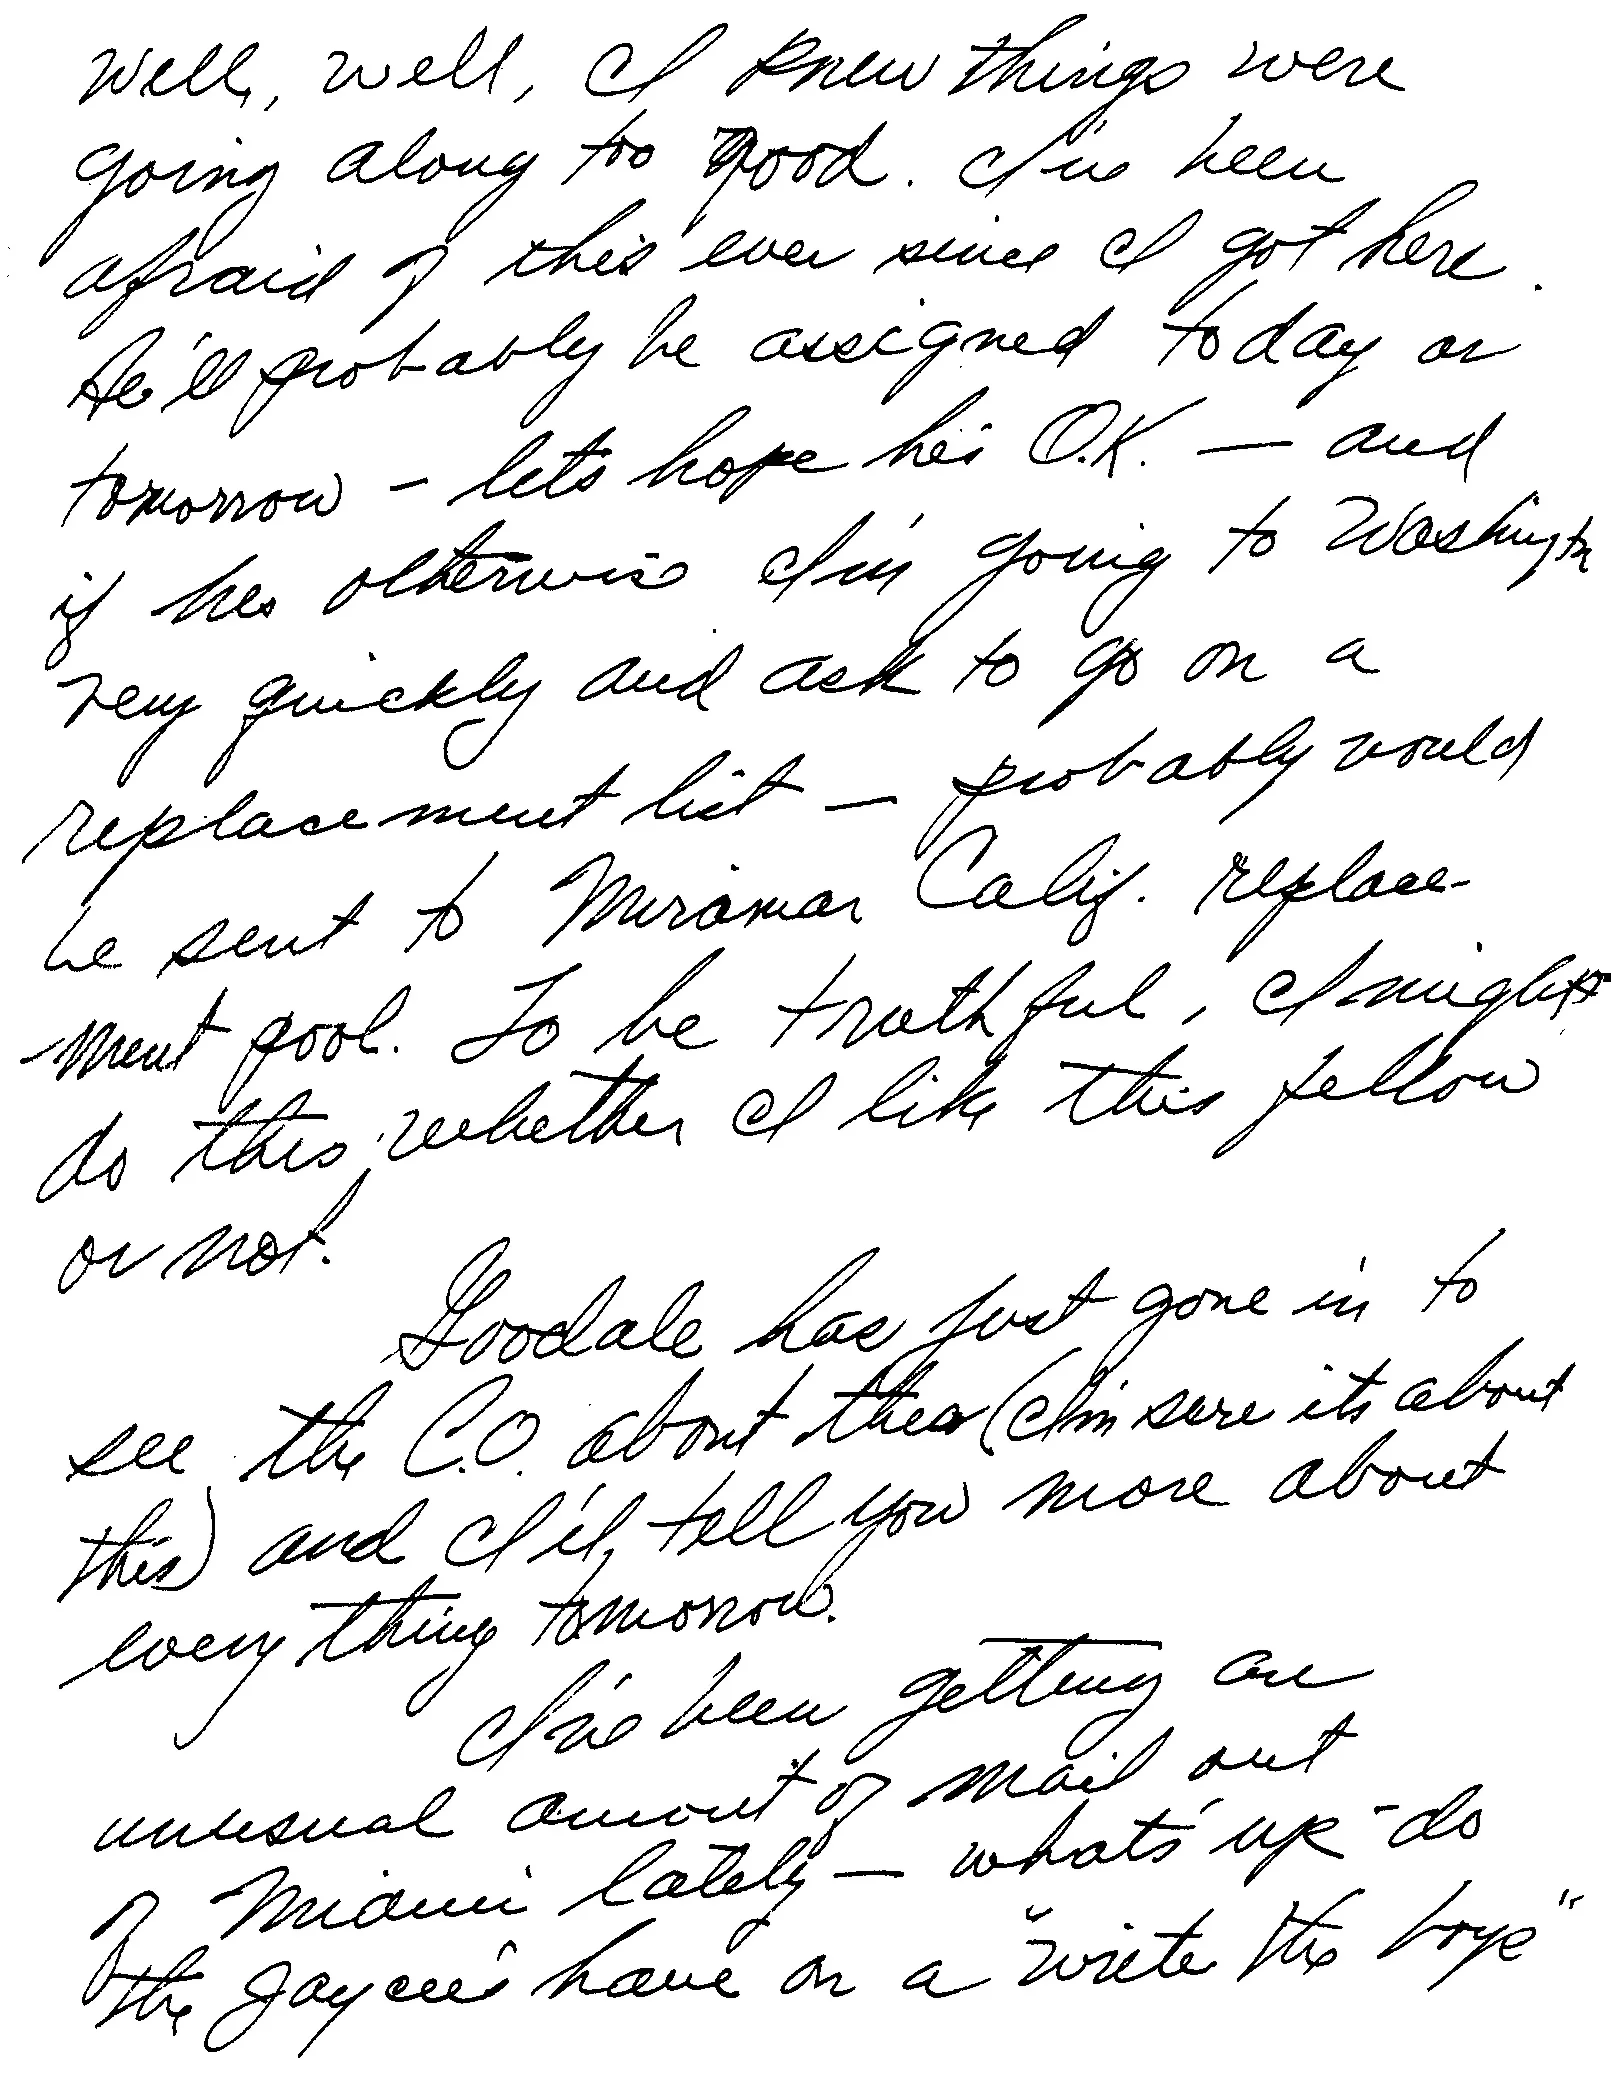 Well, well, I knew things were
going along too good. I've been
afraid of this ever since I got here.
He'll probably be assigned today or
tomorrow - lets hope he's O.K. — and
if hes otherwise I'm going to Washington
very quickly and ask to go on a
replacement list — probably would
be sent to Miramar Calif. replace-
ment pool. To be truthful, I might
do this whether I like this fellow
or not.
Goodale has just gone in to
see the C.O. about this (I'm sure its about
this) and I'll tell you more about
everything tomorrow.
I've been getting an
unusual amount of mail out
of Miami lately — what's up - do
the Jaycee's have on a "write the boys"